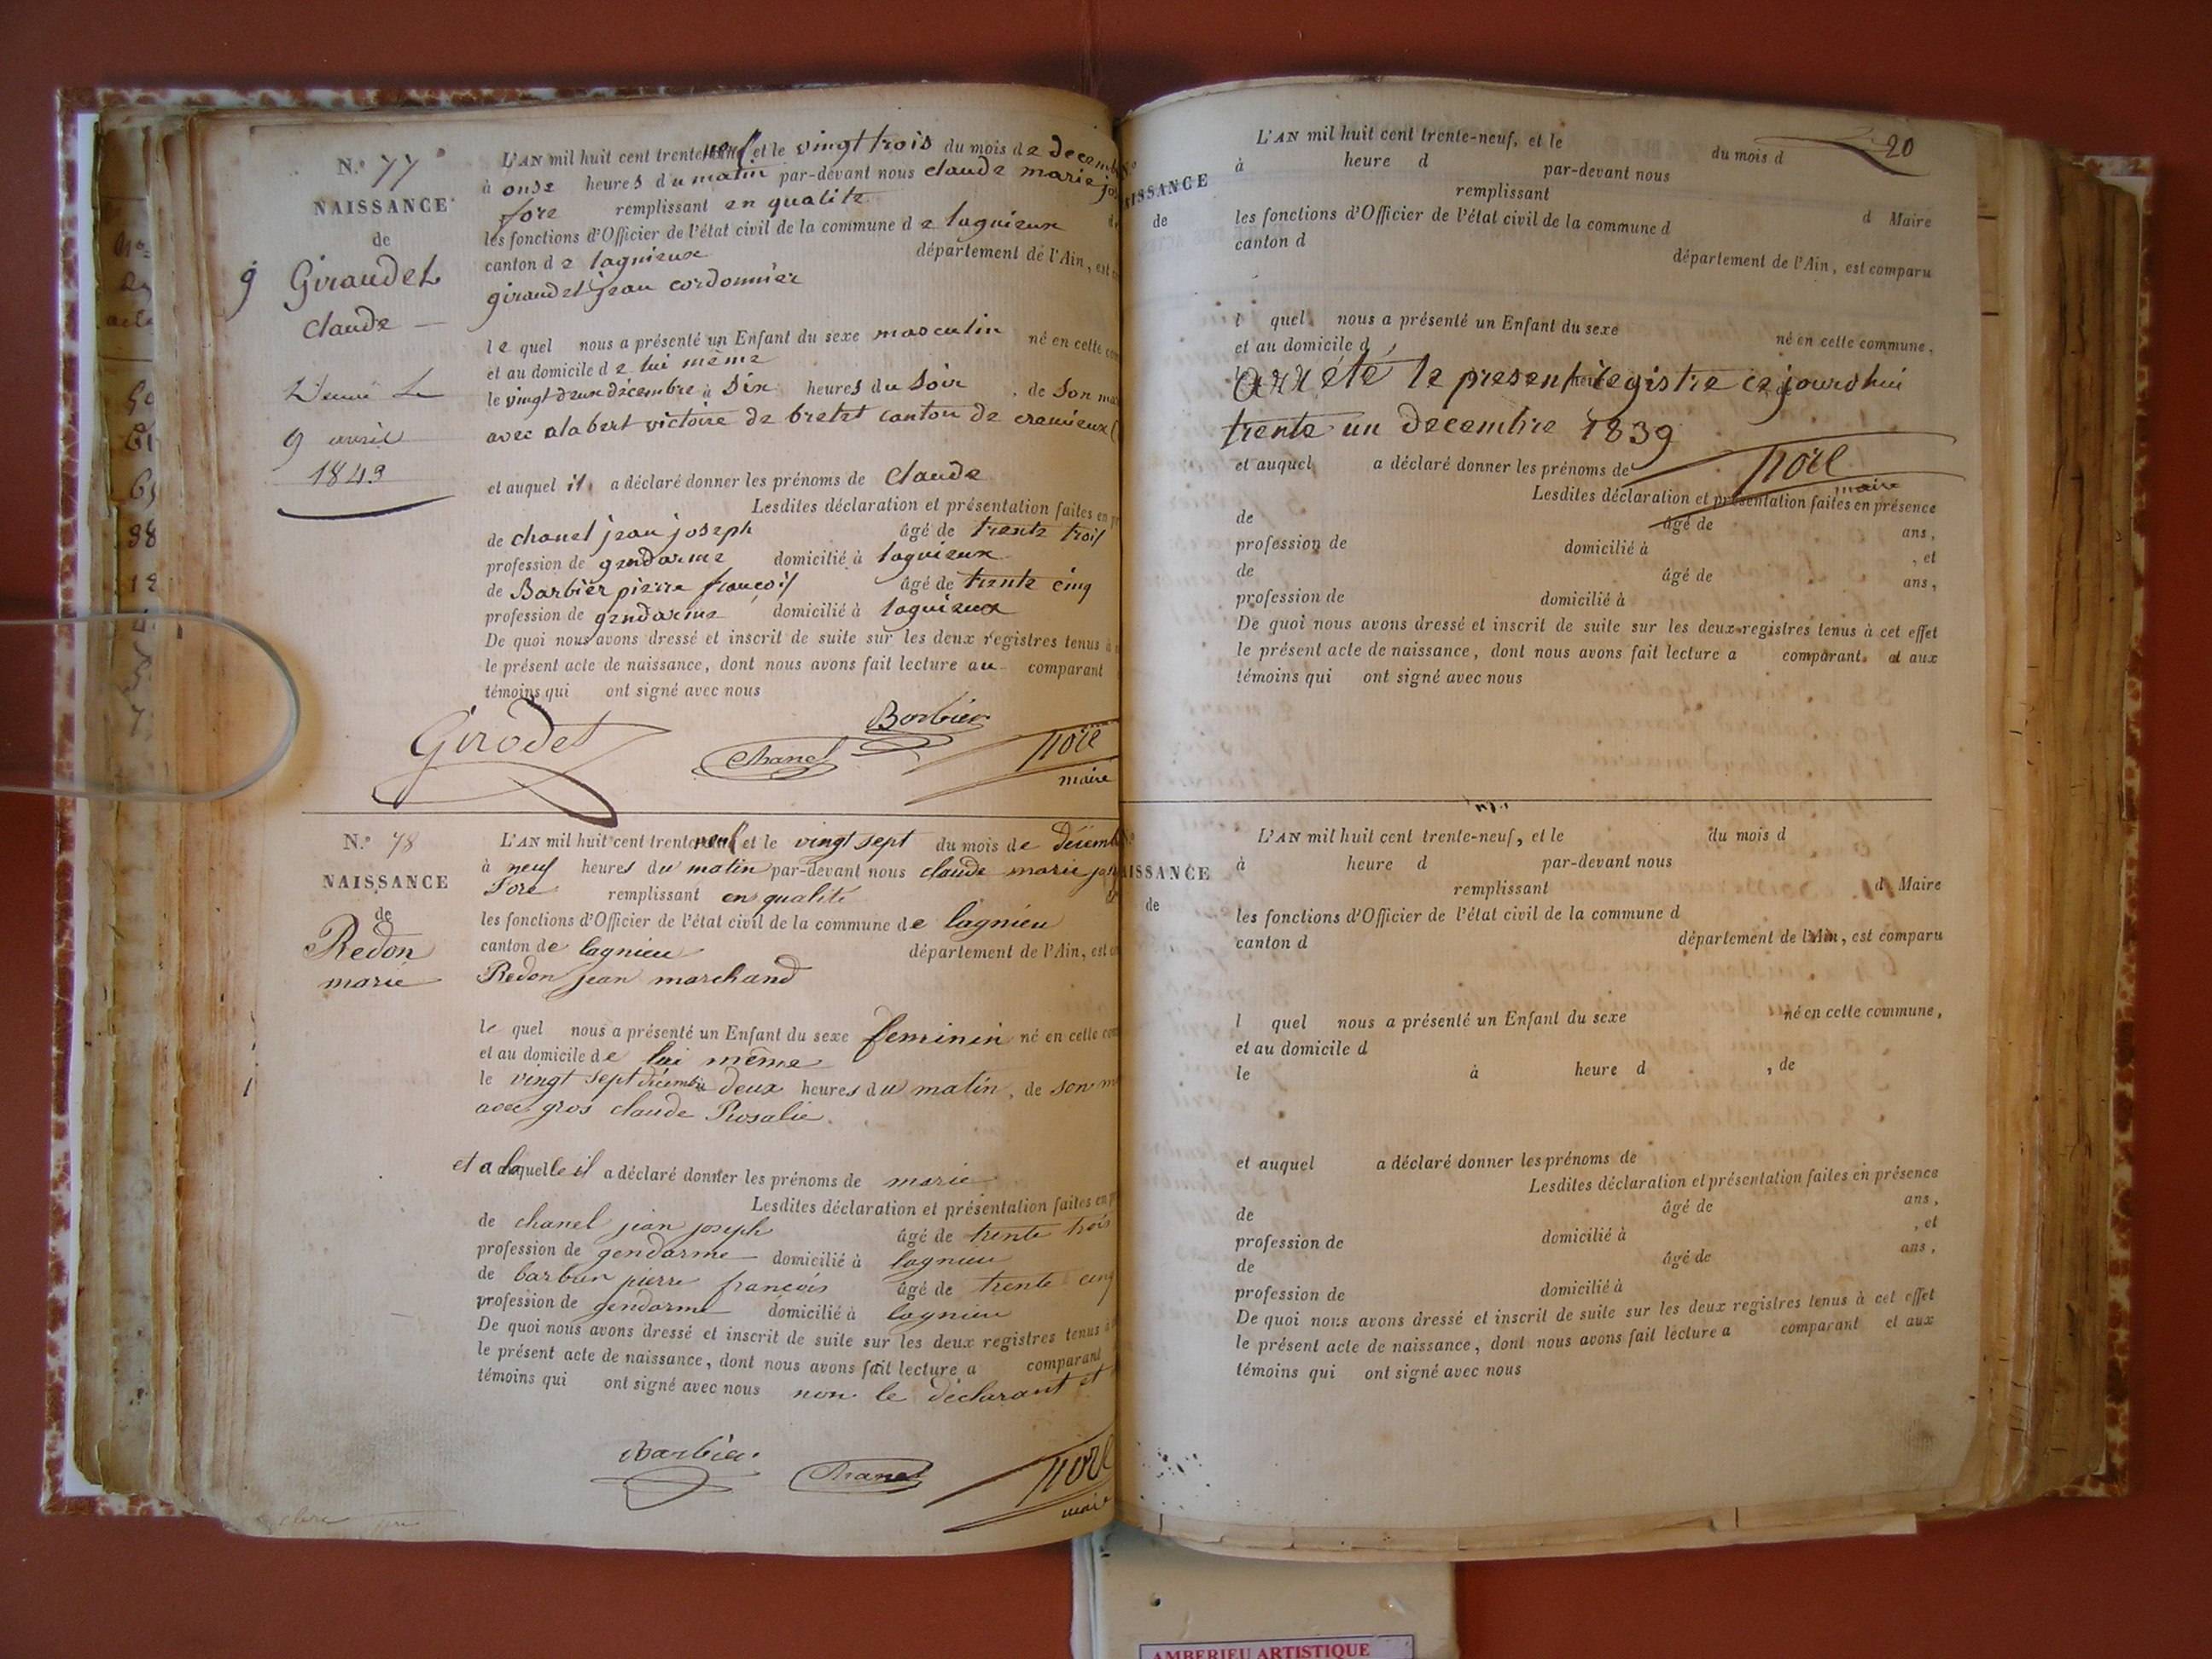 N.o 77
NAISSANCE
de
g Giraudet
claude
9 avril
1843
L'AN mil huit cent trente neuf et le vingt trois du mois de decemb
à onze heures du matin par-devant nous claude marie jos
fore remplissant en qualite
les fonctions d'Officier de l'état civil de la commune de lagnieux
canton de lagnieux département de l'Ain, est
giraudet jean cordonnier
le quel nous a présenté un Enfant du sexe masculin né en cette com
et au domicile de lui même
le vingt deux décembre à six heures du soir, de son ma
avec alabert victoire de bretet canton de cremieux
et auquel il a déclaré donner les prénoms de claude
Lesdites déclaration et présentation faites en pr
de chanel jean joseph âgé de trente trois
profession de gendarme domicilié à lagnieux
de Barbier pierre françois âgé de trente cinq
profession de gendarme domicilié à lagnieux
De quoi nous avons dressé et inscrit de suite sur les deux registres tenus à
le présent acte de naissance, dont nous avons fait lecture au comparant
témoins qui ont signé avec nous
Girodet Chanel Barbier fore
maire
N.o 78
NAISSANCE
de
Redon
marie
L'AN mil huit cent trente neuf et le vingt sept du mois de décemb
à neuf heures du matin par-devant nous claude marie jos
fore remplissant en qualité
les fonctions d'Officier de l'état civil de la commune de lagnieu
canton de lagnieu département de l'Ain, est
Redon jean marchand
le quel nous a présenté un Enfant du sexe feminin né en cette com
et au domicile de lui même
le vingt sept décembre deux heures du matin, de son m
avec gros claude Rosalie
et a laquelle il a déclaré donner les prénoms de marie
Lesdites déclaration et présentation faites en p
de chanel jean joseph âgé de trente trois
profession de gendarme domicilié à lagnieu
de barbier pierre francois âgé de trente cinq
profession de gendarme domicilié à lagnieu
De quoi nous avons dressé et inscrit de suite sur les deux registres tenus à
le présent acte de naissance, dont nous avons fait lecture a comparant
témoins qui ont signé avec nous non le déclarant et
Barbier Chanel fore
maire
20
NAISSANCE
de
L'AN mil huit cent trente-neuf, et le du mois d
à heure d par-devant nous
remplissant
les fonctions d'Officier de l'état civil de la commune d d Maire
canton d département de l'Ain, est comparu
l quel nous a présenté un Enfant du sexe né en cette commune,
et au domicile d
arrété le present registre ce jourdhui
trente un decembre 1839
fore
maire
et auquel a déclaré donner les prénoms de
Lesdites déclaration et présentation faites en présence
de âgé de ans,
profession de domicilié à , et
de âgé de ans,
profession de domicilié à
De quoi nous avons dressé et inscrit de suite sur les deux registres tenus à cet effet
le présent acte de naissance, dont nous avons fait lecture a comparant et aux
témoins qui ont signé avec nous
NAISSANCE
de
L'AN mil huit cent trente-neuf, et le du mois d
à heure d par-devant nous
remplissant d Maire
les fonctions d'Officier de l'état civil de la commune d
canton d département de l'Ain, est comparu
l quel nous a présenté un Enfant du sexe né en cette commune,
et au domicile d
le à heure d , de
et auquel a déclaré donner les prénoms de
Lesdites déclaration et présentation faites en présence
de âgé de ans,
profession de domicilié à , et
de âgé de ans,
profession de domicilié à
De quoi nous avons dressé et inscrit de suite sur les deux registres tenus à cet effet
le présent acte de naissance, dont nous avons fait lecture a comparant et aux
témoins qui ont signé avec nous
AMBERIEU ARTISTIQUE